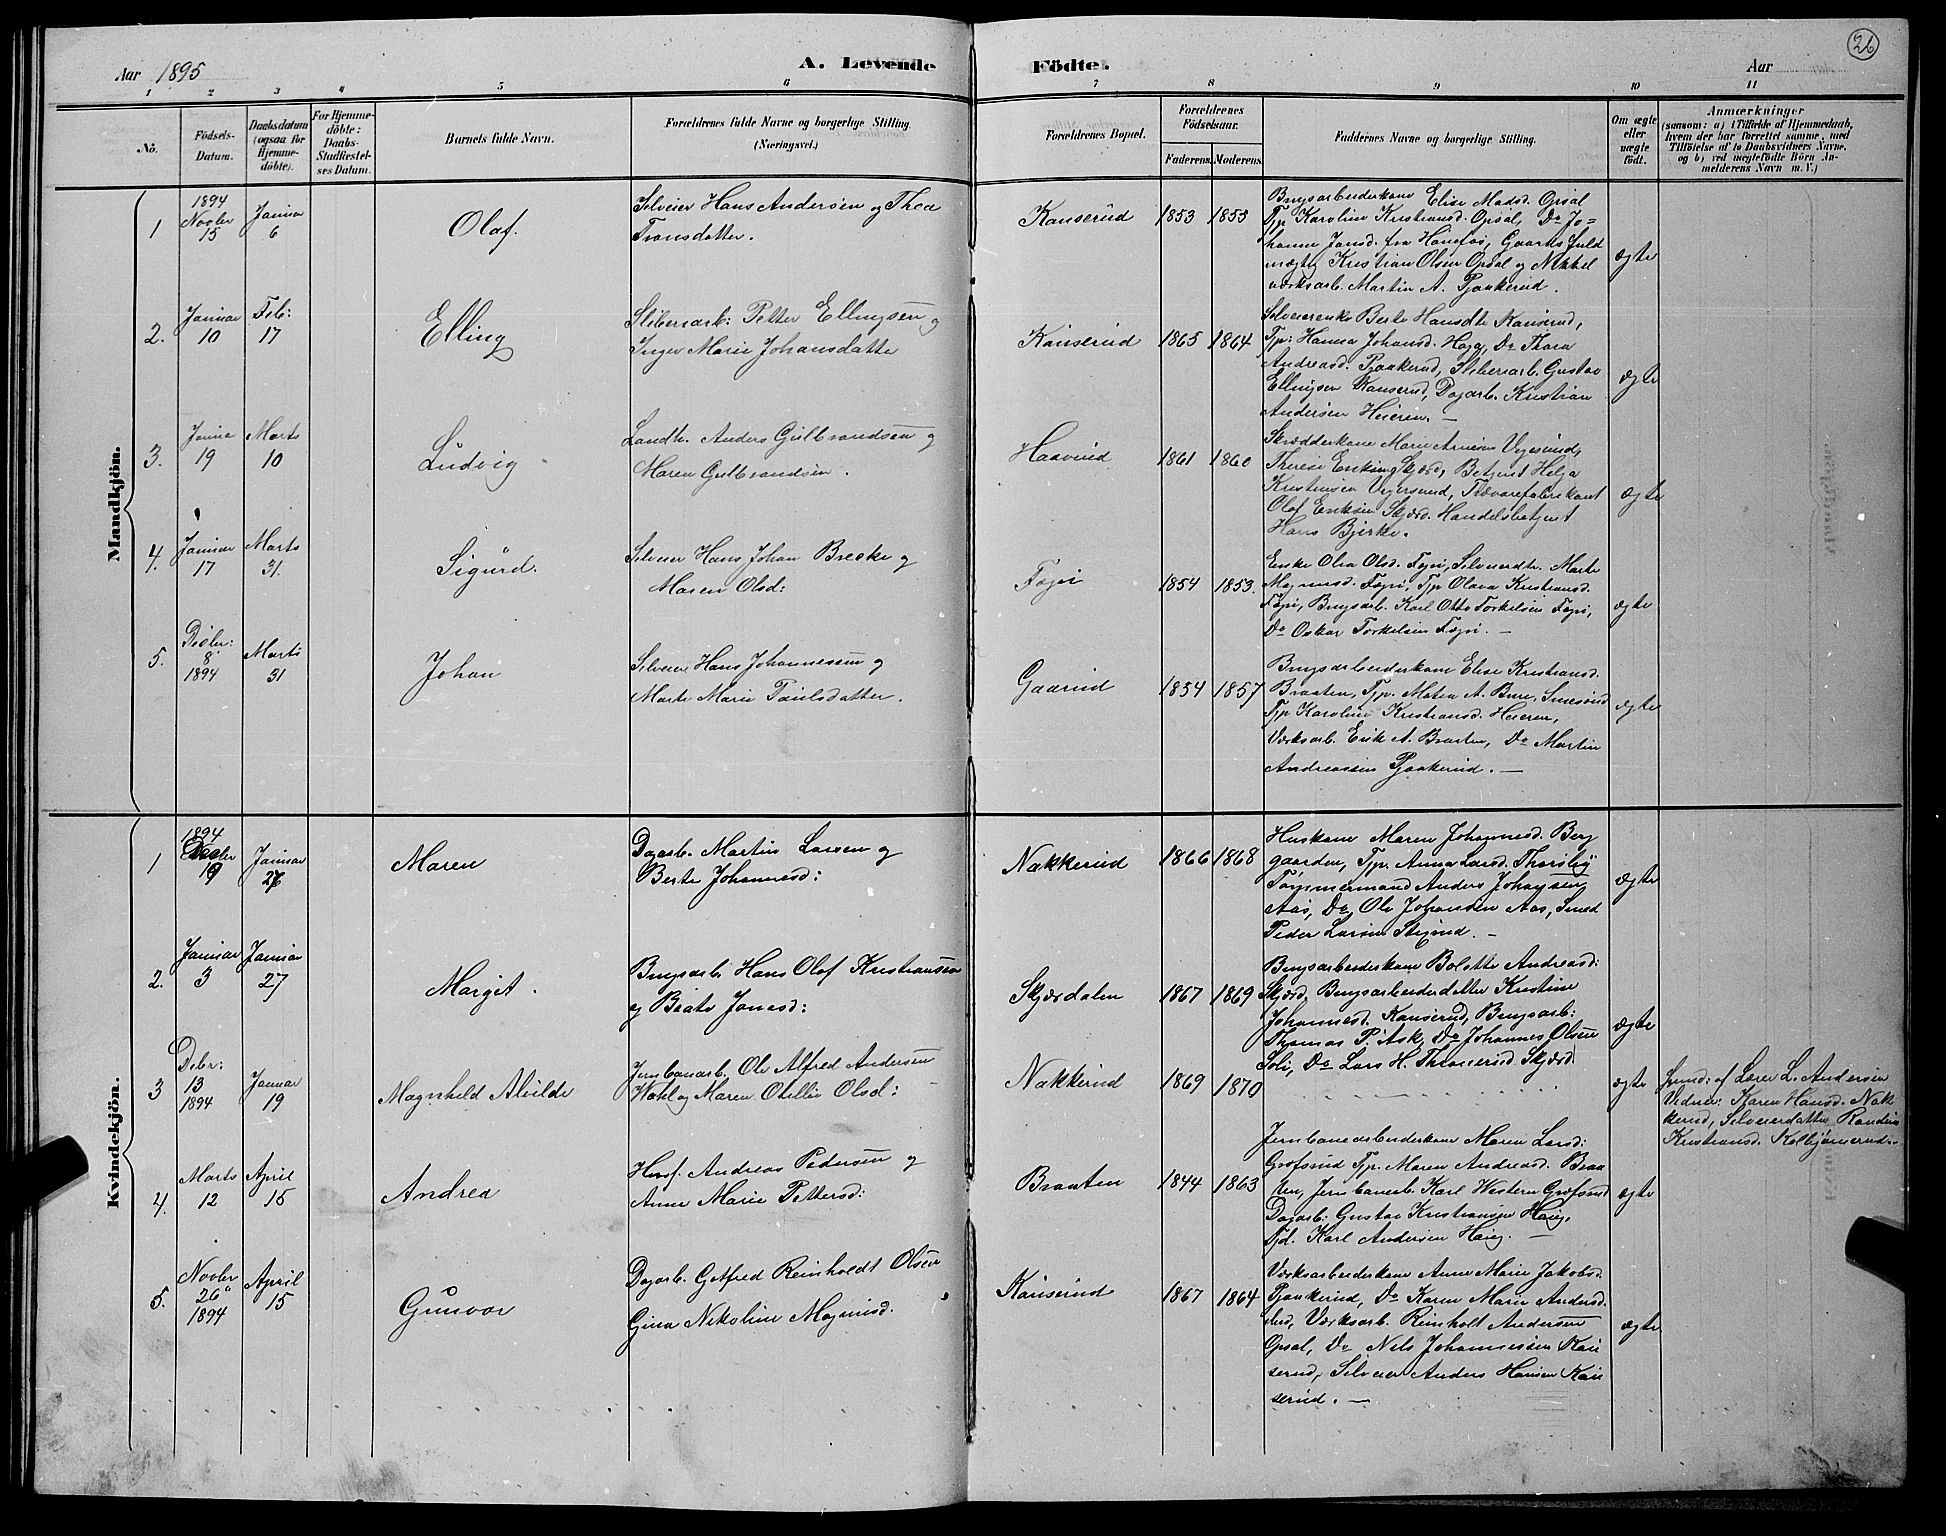 Aar 1895
A. Levende Födte.
Aar
26
1 2 3 4 5 6 7 8 9 10 11
No.
Födsels-
Datum.
Daabsdatum
(ogsaa for
Hjemme-
döbte).
For Hjemme-
döbte:
Daabs-
Stadfæstel-
ses Datum.
Barnets fulde Navn.
Forældrenes fulde Navne og borgerlige Stilling.
(Næringsvei.)
Forældrenes Bopæl.
Forældrenes
Födselsaar.
Faderens. Moderens.
Faddernes Navne og borgerlige Stilling.
Om ægte
eller
uægte
födt.
Anmærkninger
(saasom: a) i Tilfælde af Hjemmedaab,
hvem der har forrettet samme, med
Tilföielse af to Daabsvidners Navne.
og b) ved uægtefödte Börn An-
melderens Navn m. V.)
Mandkjön.
1
1894
Novbr
15
Januar
6
Olaf.
Selveier Hans Andersen og Thea
Transdatter.
Kanserud
1853 1853
Brugsarbeiderkone Elise Madsd. Opsal
Typ Karoline Kristiansd. Opsal, Do Jo-
hanne Jansd. fra Hønefos, Gaardsfuld
mægtig Kristian Olsen Opsal og Nikkel
værksarb. Martin A. Pjaakerud.
ægte
2.
Januar
10
Feb:
17
Elling
Sliberiarb: Petter Ellingsen og
Inger Marie Johansdatter
Kanserud
1865 1864
Selveierenke Berte Hansdtr Kanserud,
Typ: Hanna Johansd. Hag, Do Thora
Andreasd. Pjaakerud, Sliberiarb. Gustav
Ellingsen Kanserud, Dagarb. Kristian
Andersen Heieren. —
ægte
3.
Janua
19
Marts
10
Ludvig
Landh. Anders Gulbrandsen og
Maren Gulbrandsen.
Haavrud
1861 1860
Skrædderkone Marie Arnesen Vegersund,
Therese Eriksen Skjærd, Betjent Helge
Kristensen Vegersund, Trævarefabrikant
Olaf Eriksen Skjærd. Handelsbetjent
Hans Bjerke.
ægte
4.
Januar
17
Marts
31.
Sigurd.
Selveier Hans Johan Breske og
Maren Olsd:
Fægri
1854 1853.
Enke Olea Olsd. Fægri, Selveierdtr. Marte
Magnusd. Fægri, Typ Olava Kristiansd.
Fægri, Brugsarb. Karl Otto Torkelsen Fægri,
Do Oskar Torkelsen Fægri. —
ægte
5.
Desbr:
8
1894
Marts
31
Johan
Selveier Hans Johannessen og
Marte Marie Paulsdatter.
Gaarud
1854 1857
Brugsarbeiderkone Elise Kristiansd.
Braaten, Typ. Matea A. Bure, Smesrud
Typ Karoline Kristiansd. Heieren,
Værksarb. Erik A. Braaten, Do Martin
Andreassen Pjaakerud. —
ægte
Kvindekjön.
1
1894
Desbr
19
Januar
26
Maren
Dagarb. Martin Larsen og
Berte Johannesd:
Nakkerud
1866 1868
Huskone Maren Johannesd. Berg
gaarden, Typ. Anna Larsd. Thorsby
Tømmermand Anders Johansen
Aas, Do Ole Johansen Aas, Smed
Peder Larsen Stigrud. —
ægte
2.
Januar
3
Januar
27
Margit.
Brugsarb: Hans Olaf Kristiansen
og Beate Jonasd:
Skjærdalen
1867 1869
Brugsarbeiderkone Bolette Andreasd:
Skjærd, Brugsarbeiderdatter Kristine
Johannesd. Kanserud, Brugsarb:
Thomas P. Ask, Do Johannes Olsen
Soli, Do Lars H. Thonerud Skjærd
ægte
3
Debr:
13
1894
Januar
19
Magnhild Alvilde
Jernbanarb. Ole Alfred Andersen
Wahl og Maren Otellie Olsd:
Nakkerud
1869 1870
ægte
af Lærer L. Andersen
Vidner: Karen Hansd. Nak
kerud, Selveierdatter Randine
Kristiansd. Kolbjørnerud. —
4.
Marts
12
April
15
Andrea
Husf. Andreas Pedersen og
Anne Marie Pettersd:
Braaten
1844 1863
Jernbanearbeiderkone Maren Larsd:
Grøfsrud Typ. Maren Andreasd. Braa
ten, Jernbanearb. Karl Western Grøfsrud
Dagarb: Gustav Kristiansen Haug,
Tjd. Karl Andersen Haug. —
ægte
5.
Novbr
26
1894
April
15
Gunvor
Dagarb. Gotfred Reinholdt Olsen
Gina Nikoline Magnusd:
Kanserud
1867 1864
Værksarbeiderkone Anne Marie Jakobsd.
Pjaakerud, Do Karen Marie Andersd.
Ibid, Værksarb. Reinholt Andersen
Opsal, Do Nils Johannessen Kan
serud, Selveier Anders Hansen Kan
serud. —
ægte